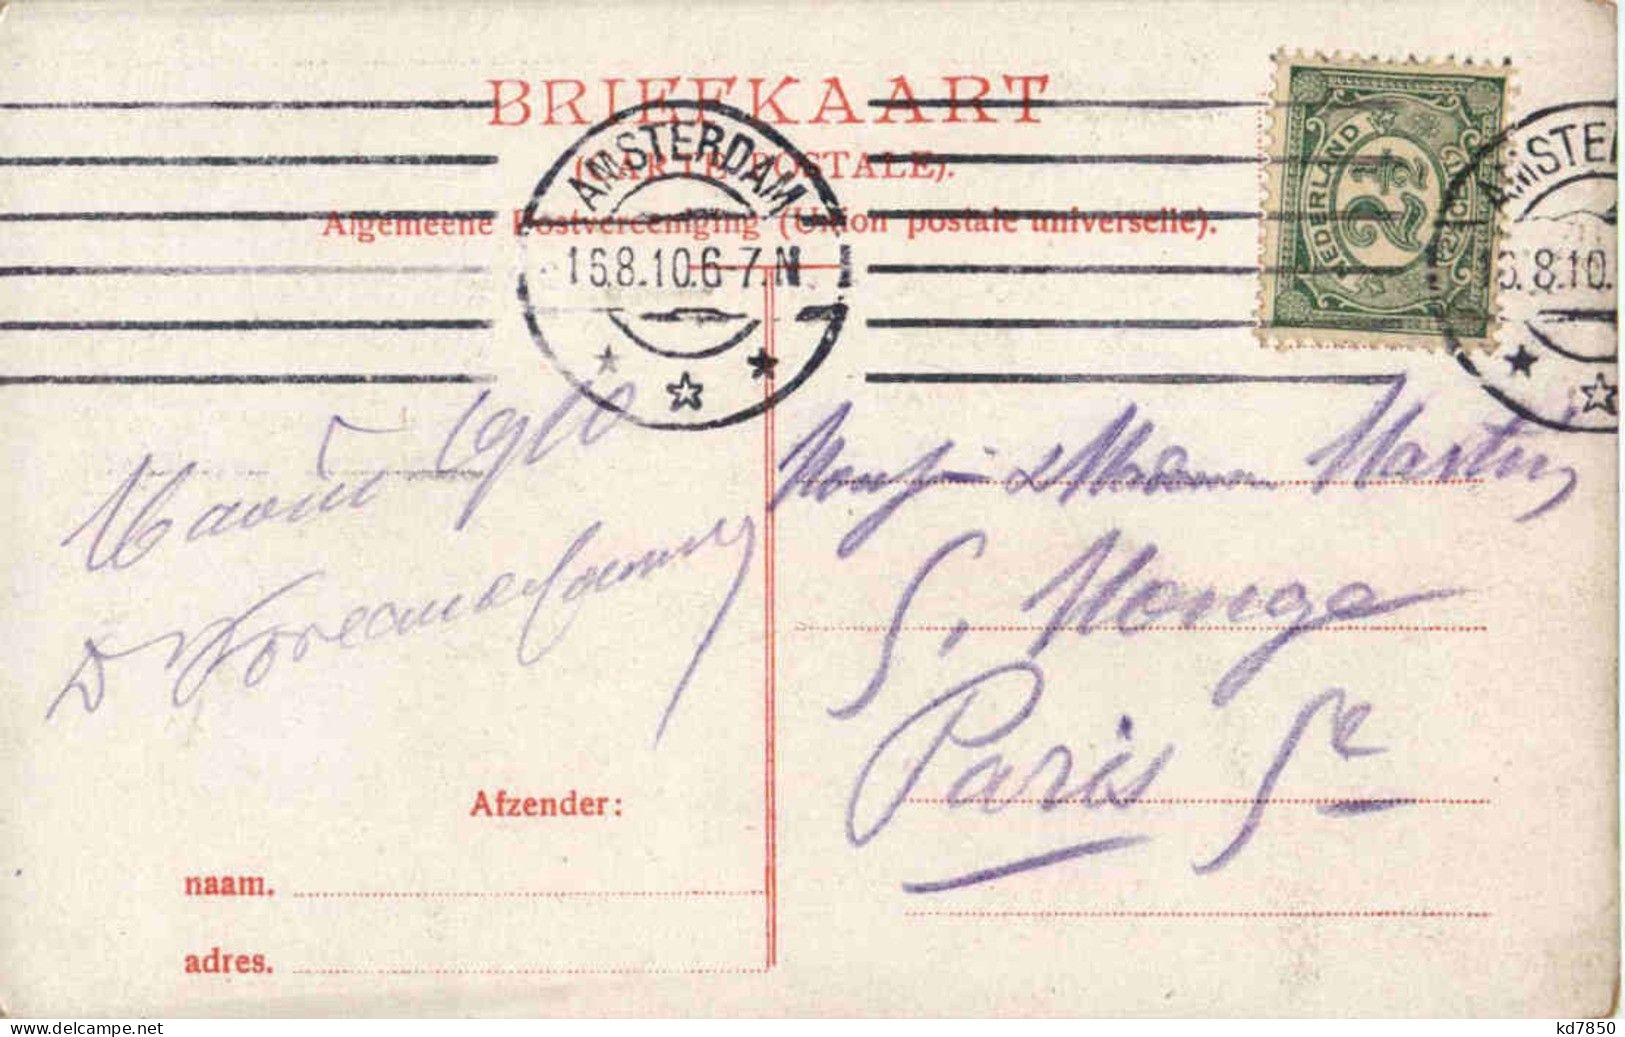 BRIEFKAART
(CARTE POSTALE).
Algemeene Postvereeniging (Union postale universelle).
AMSTERDAM
16.8.10.6-7.N
NEDERLAND
2½
CENT
AMSTE
6.8.10.
16 août 1910
Dr
Monsr & Madame Martin
5, Monge
Paris 5e
Afzender:
naam.
adres.
kd7850
www.delcampe.net